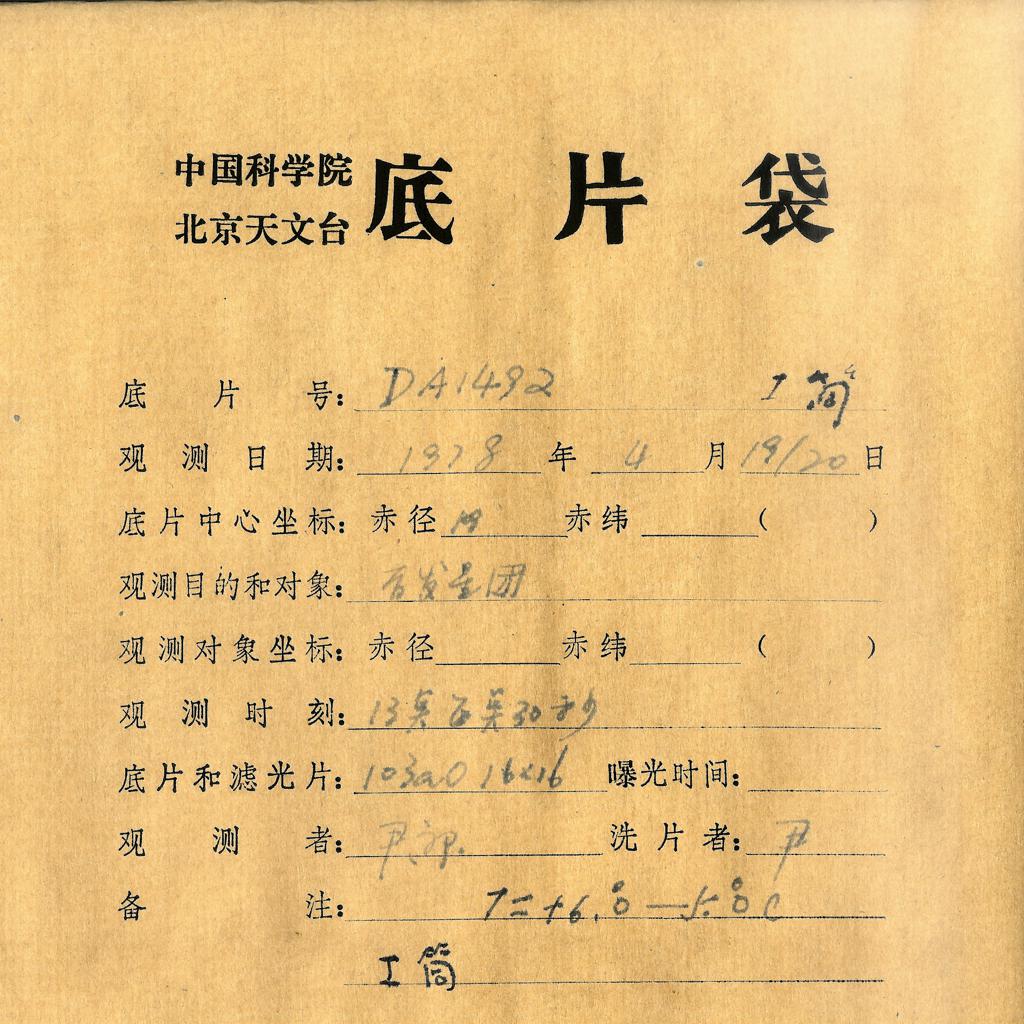 中国科学院
北京天文台
底片袋
底片号: DA1492 I 筒
观测日期: 1978 年 4 月 19/20 日
底片中心坐标: 赤径 赤纬 ( )
观测目的和对象: 后发星团
观测对象坐标: 赤径 赤纬 ( )
观测时刻: 13 30秒
底片和滤光片: 103aO 16x16 曝光时间:
观测者: 尹 洗片者: 尹
备注: T=+6.°0—5.°0C
I 筒